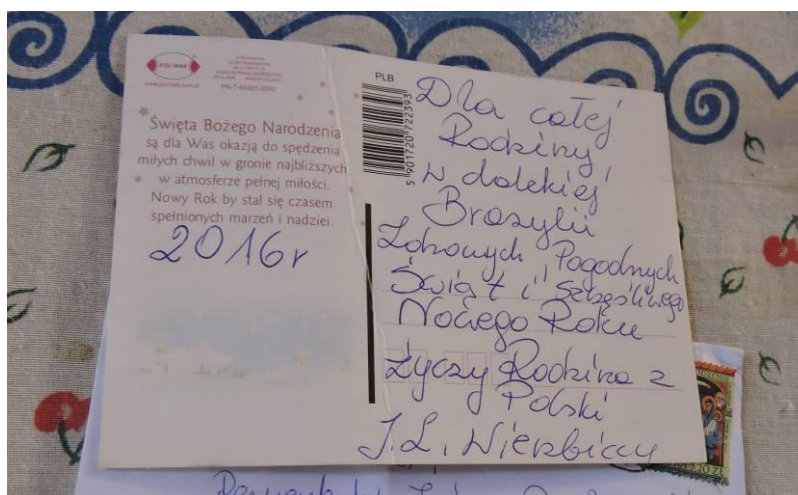 POL-MAK
www.pol-mak.com.pl
PN-T-85005:2000
Święta Bożego Narodzenia
są dla Was okazją do spędzenia
miłych chwil w gronie najbliższych
w atmosferze pełnej miłości.
Nowy Rok by stał się czasem
spełnionych marzeń i nadziei.
2016r
PLB
5 901720 722393
Dla całej
Rodziny
w dalekiej
Brazylii
Zdrowych, Pogodnych
Świąt i Szczęśliwego
Nowego Roku
życzy Rodzina z
Polski
J.L. Wierzbiccy